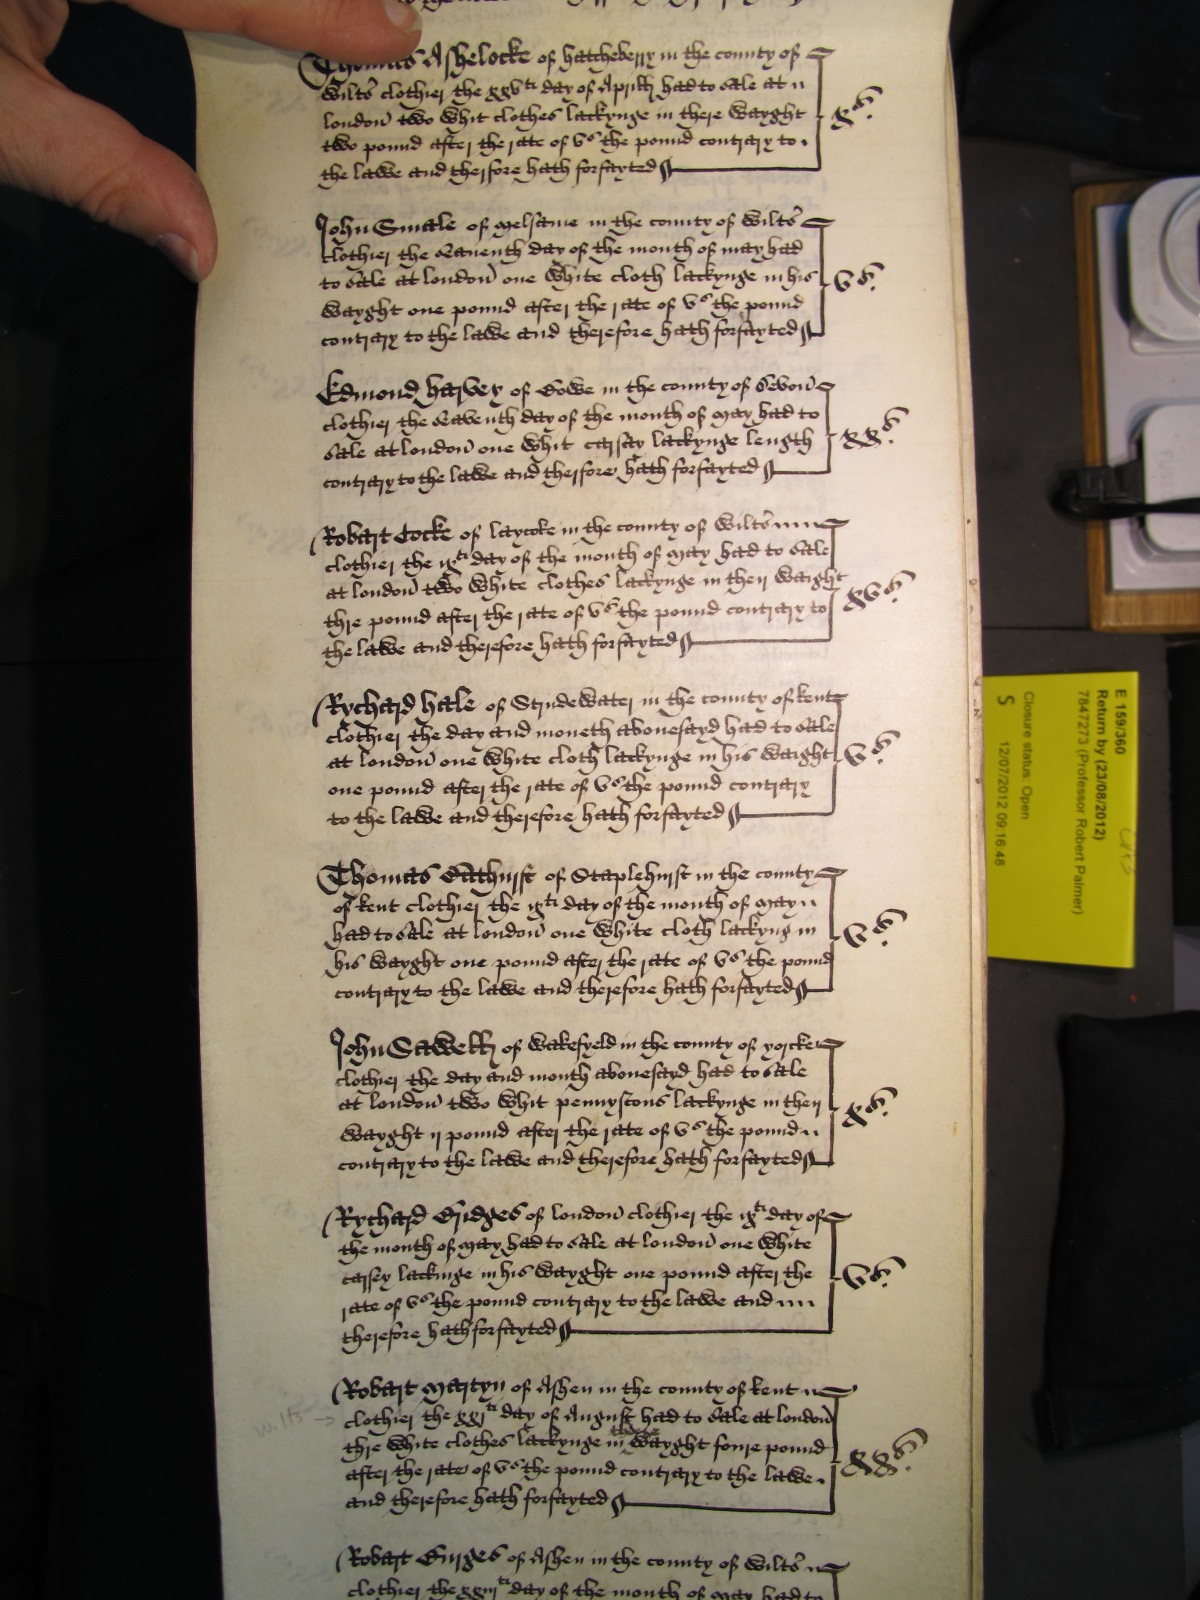 Thomas Ashelocke of hatchebery in the county of
wiltes clothier the xxvth day of Aprill had to Sale at
london two whit clothes lackynge in there wayght
two pound after the rate of vs the pound contrary to
the lawe and therfore hath forfayted
xs.
John Smale of melsame in the county of wiltes
clothier the Seaventh day of the month of may had
to Sale at london one white cloth lackynge in his
wayght one pound after the rate of vs the pound
contrary to the lawe and therefore hath forfayted
vs.
Edmond harvey of in the county of devon
clothier the Seaventh day of the month of may had to
Sale at london one whit carsay lackynge length
contrary to the lawe and therfore hath forfayted
xxs.
Robart Cocke of laycoke in the county of wiltes
clothier the ixth day of the month of may had to Sale
at london two white clothes lackynge in their waight
thre pound after the rate of vs the pound contrary to
the lawe and therefore hath forfayted
xvs.
Rychard hale of Strudewater in the county of kent
clothier the day and moneth abouesayd had to Sale
at london one white cloth lackynge in his waight
one pound after the rate of vs the pound contrary
to the lawe and therefore hath forfayted
vs.
Thomas Bathurst of Staplehurst in the county
of kent clothier the ixth day of the month of may
had to Sale at london one white cloth lackyng in
his wayght one pound after the rate of vs the pound
contrary to the lawe and therefore hath forfayted
vs.
John Sawell of wakefyeld in the county of yorcke
clothier the day and month abouesayd had to Sale
at london two whit pennystons lackynge in their
wayght ij pound after the rate of vs the pound
contrary to the lawe and therefore hath forfayted
xs.
Rychard Bridges of london clothier the ixth day of
the month of may had to Sale at london one white
carsey lackinge in his wayght one pound after the
rate of vs the pound contrary to the lawe and
therefore hath forfayted
vs.
Robart martyn of Ashen in the county of kent
wilts →
clothier the xxjth day of August had to Sale at london
there
thre white clothes lackynge in wayght foure pound
after the rate of vs the pound contrary to the lawe
and therefore hath forfayted
xxs.
Robart Burges of Ashen in the county of wiltes
clothier the xxiijth day of the month of may had to
E 159/360
Return by (23/08/2012)
7847273 (Professor Robert Palmer)
Closure status: Open
S 12/07/2012 09:16:48